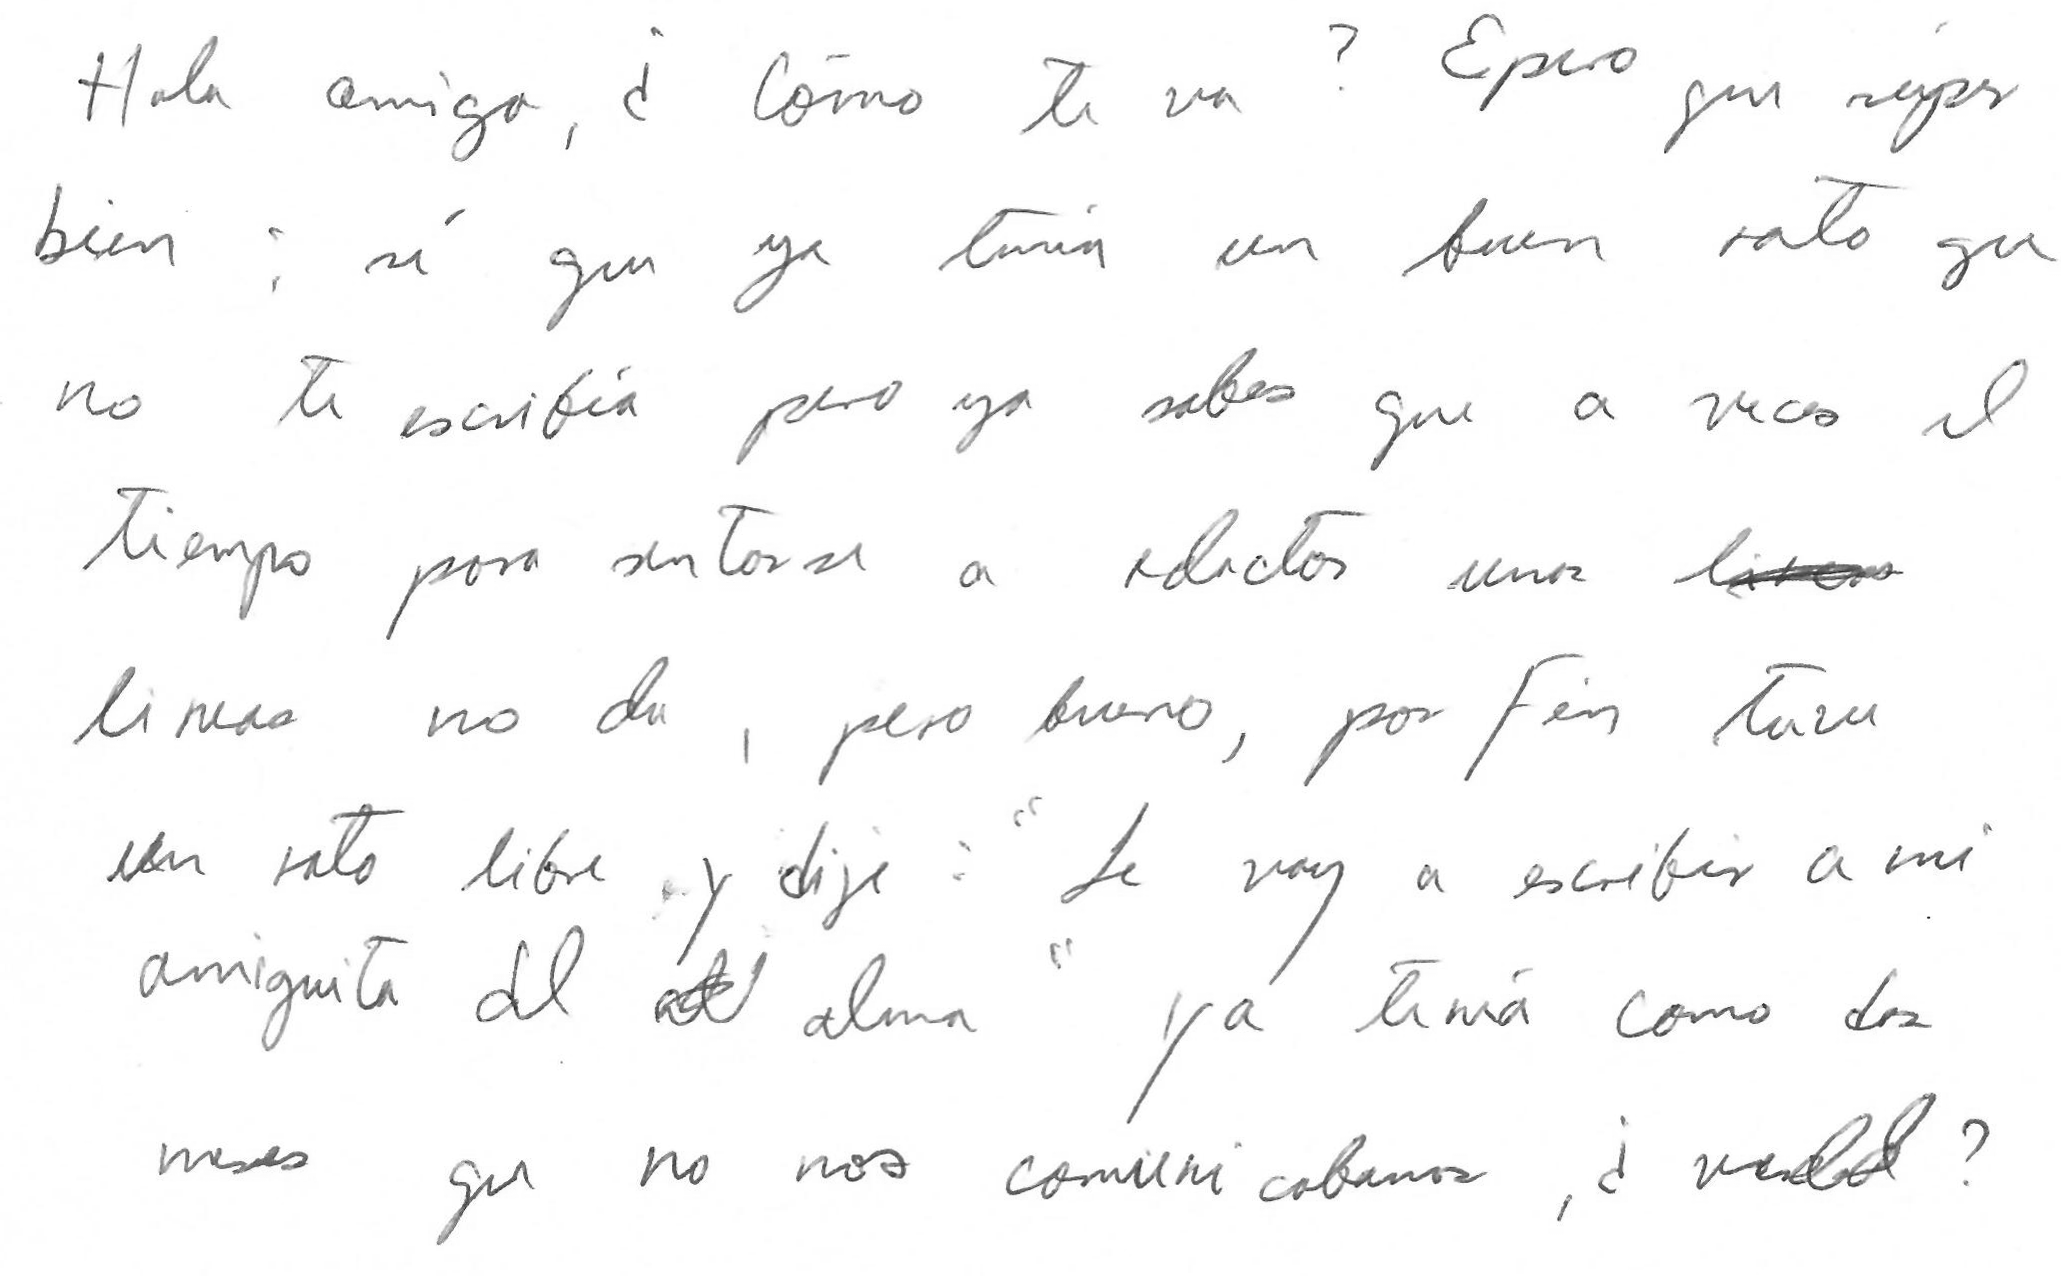 Hola amiga, ¿Cómo te va? Epero que súper
bien; sé que ya tenía un buen rato que
no te escribía pero ya sabes que a veces el
tiempo para sentarse a redactar unas
lineas no da, pero bueno, por fin tuve
un rato libre y dije: "Le voy a escribir a mi
amiguita del alma" ya tenía como dos
meses que no nos comunicabamos, ¿verdad?